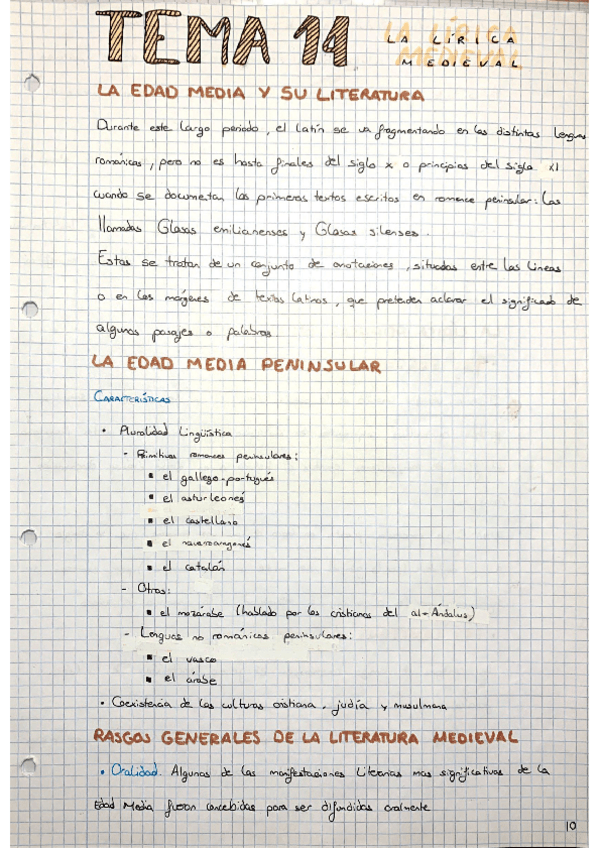 TEMA 11
LA LÍRICA
MEDIEVAL
LA EDAD MEDIA Y SU LITERATURA
Durante este largo periodo, el latín se va fragmentando en las distintas lenguas
románicas, pero no es hasta finales del siglo X o principios del siglo XI
cuando se documentan los primeros textos escritos en romance peninsular: las
llamadas Glosas emilianenses y Glosas silenses.
Estas se tratan de un conjunto de anotaciones, situadas entre las líneas
o en los márgenes de textos latinos, que pretenden aclarar el significado de
algunos pasajes o palabras.
LA EDAD MEDIA PENINSULAR
CARACTERÍSTICAS
• Pluralidad Lingüística
- Primitivos romances peninsulares:
▪ el gallego-portugués
▪ el asturleonés
▪ el castellano
▪ el navarroaragonés
▪ el catalán
- Otros:
▪ el mozárabe (hablado por los cristianos del al-Ándalus)
- Lenguas no románicas peninsulares:
▪ el vasco
▪ el árabe
• Coexistencia de las culturas cristiana, judía y musulmana
RASGOS GENERALES DE LA LITERATURA MEDIEVAL
• Oralidad. Algunas de las manifestaciones literarias mas significativas de la
Edad Media fueron concebidas para ser difundidas oralmente
10